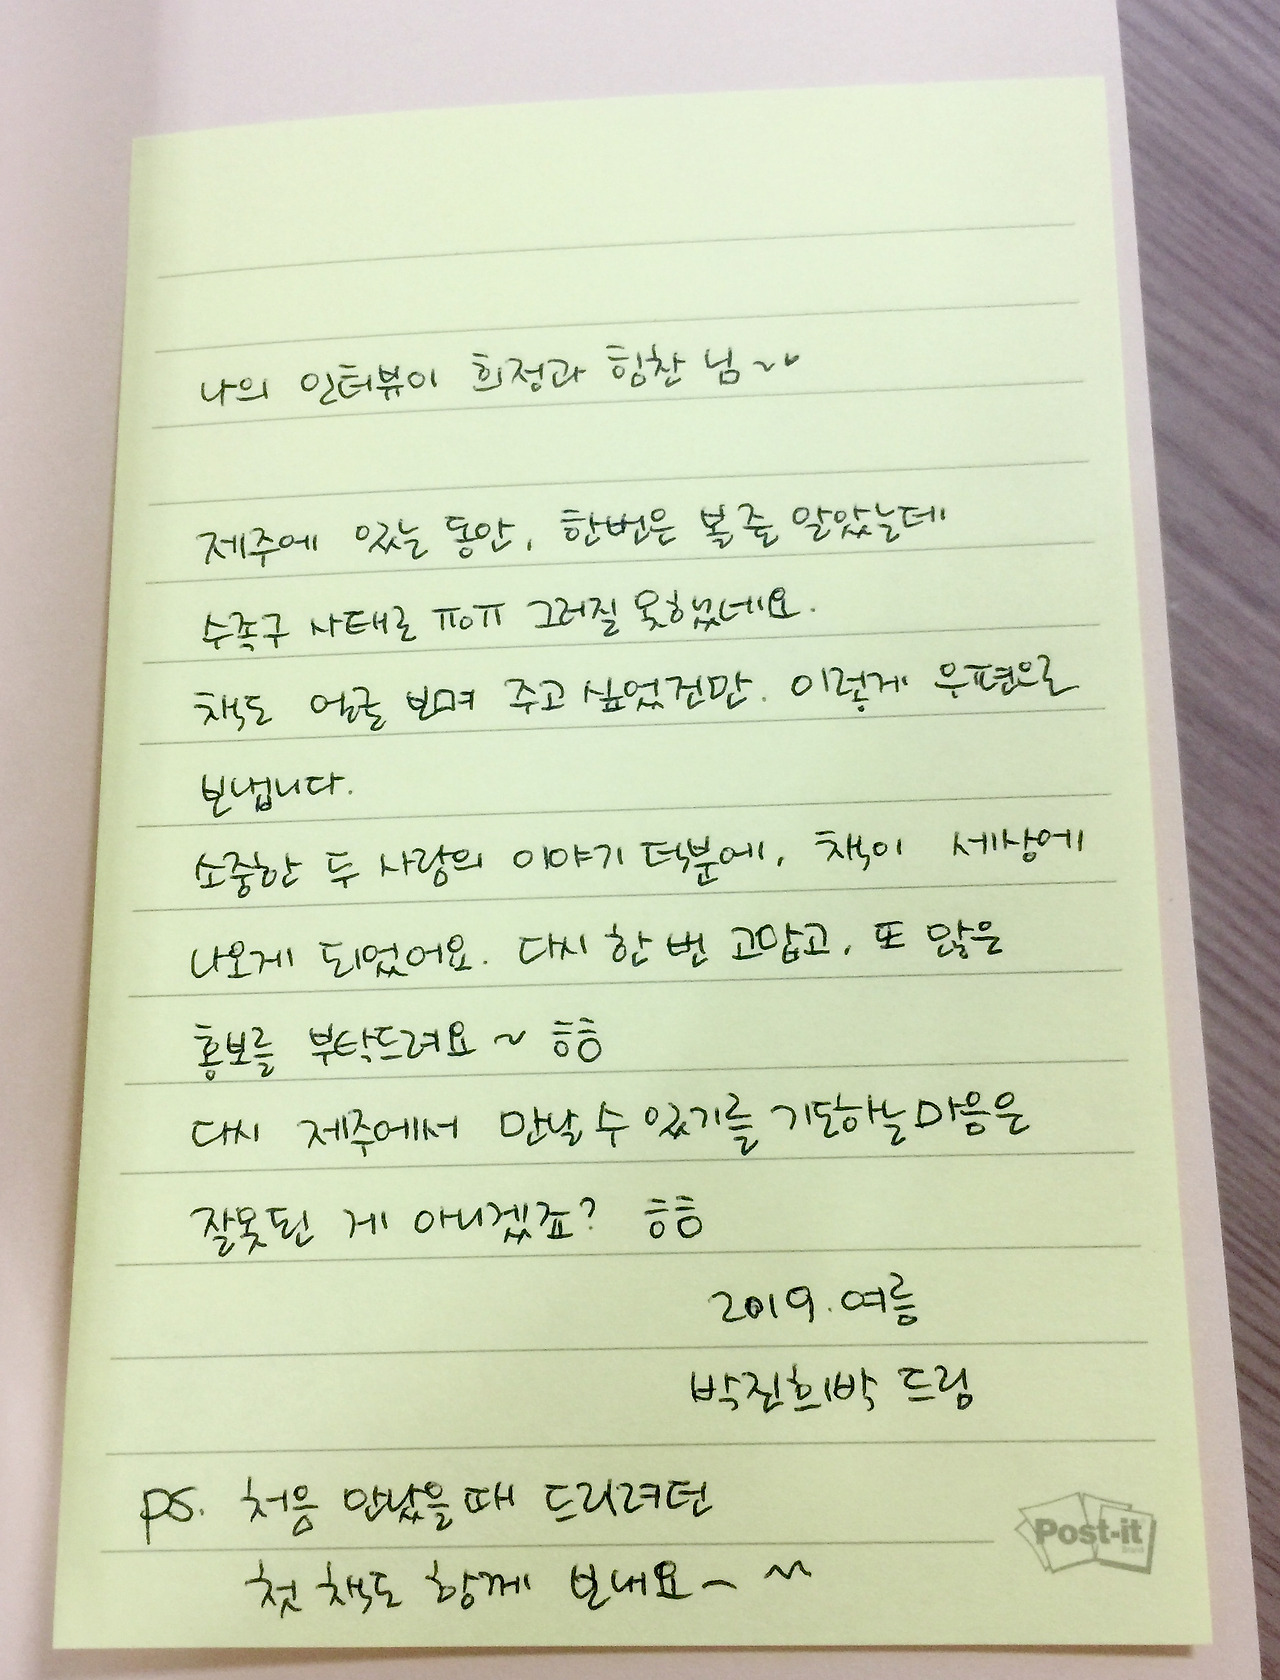 나의 인터뷰이 희정과 힘찬 님~~
제주에 있는 동안, 한번은 볼 줄 알았는데
수족구 사태로 ㅠoㅠ 그러질 못했네요.
책도 얼굴 보며 주고 싶었건만. 이렇게 우편으로
보냅니다.
소중한 두 사람의 이야기 덕분에, 책이 세상에
나오게 되었어요. 다시 한 번 고맙고, 또 많은
홍보를 부탁드려요~ ㅎㅎ
다시 제주에서 만날 수 있기를 기도하는 마음은
잘못된 게 아니겠죠? ㅎㅎ
2019. 여름
박진희박 드림
ps. 처음 만났을 때 드리려던
첫 책도 함께 보내요~ ^^
Post-it